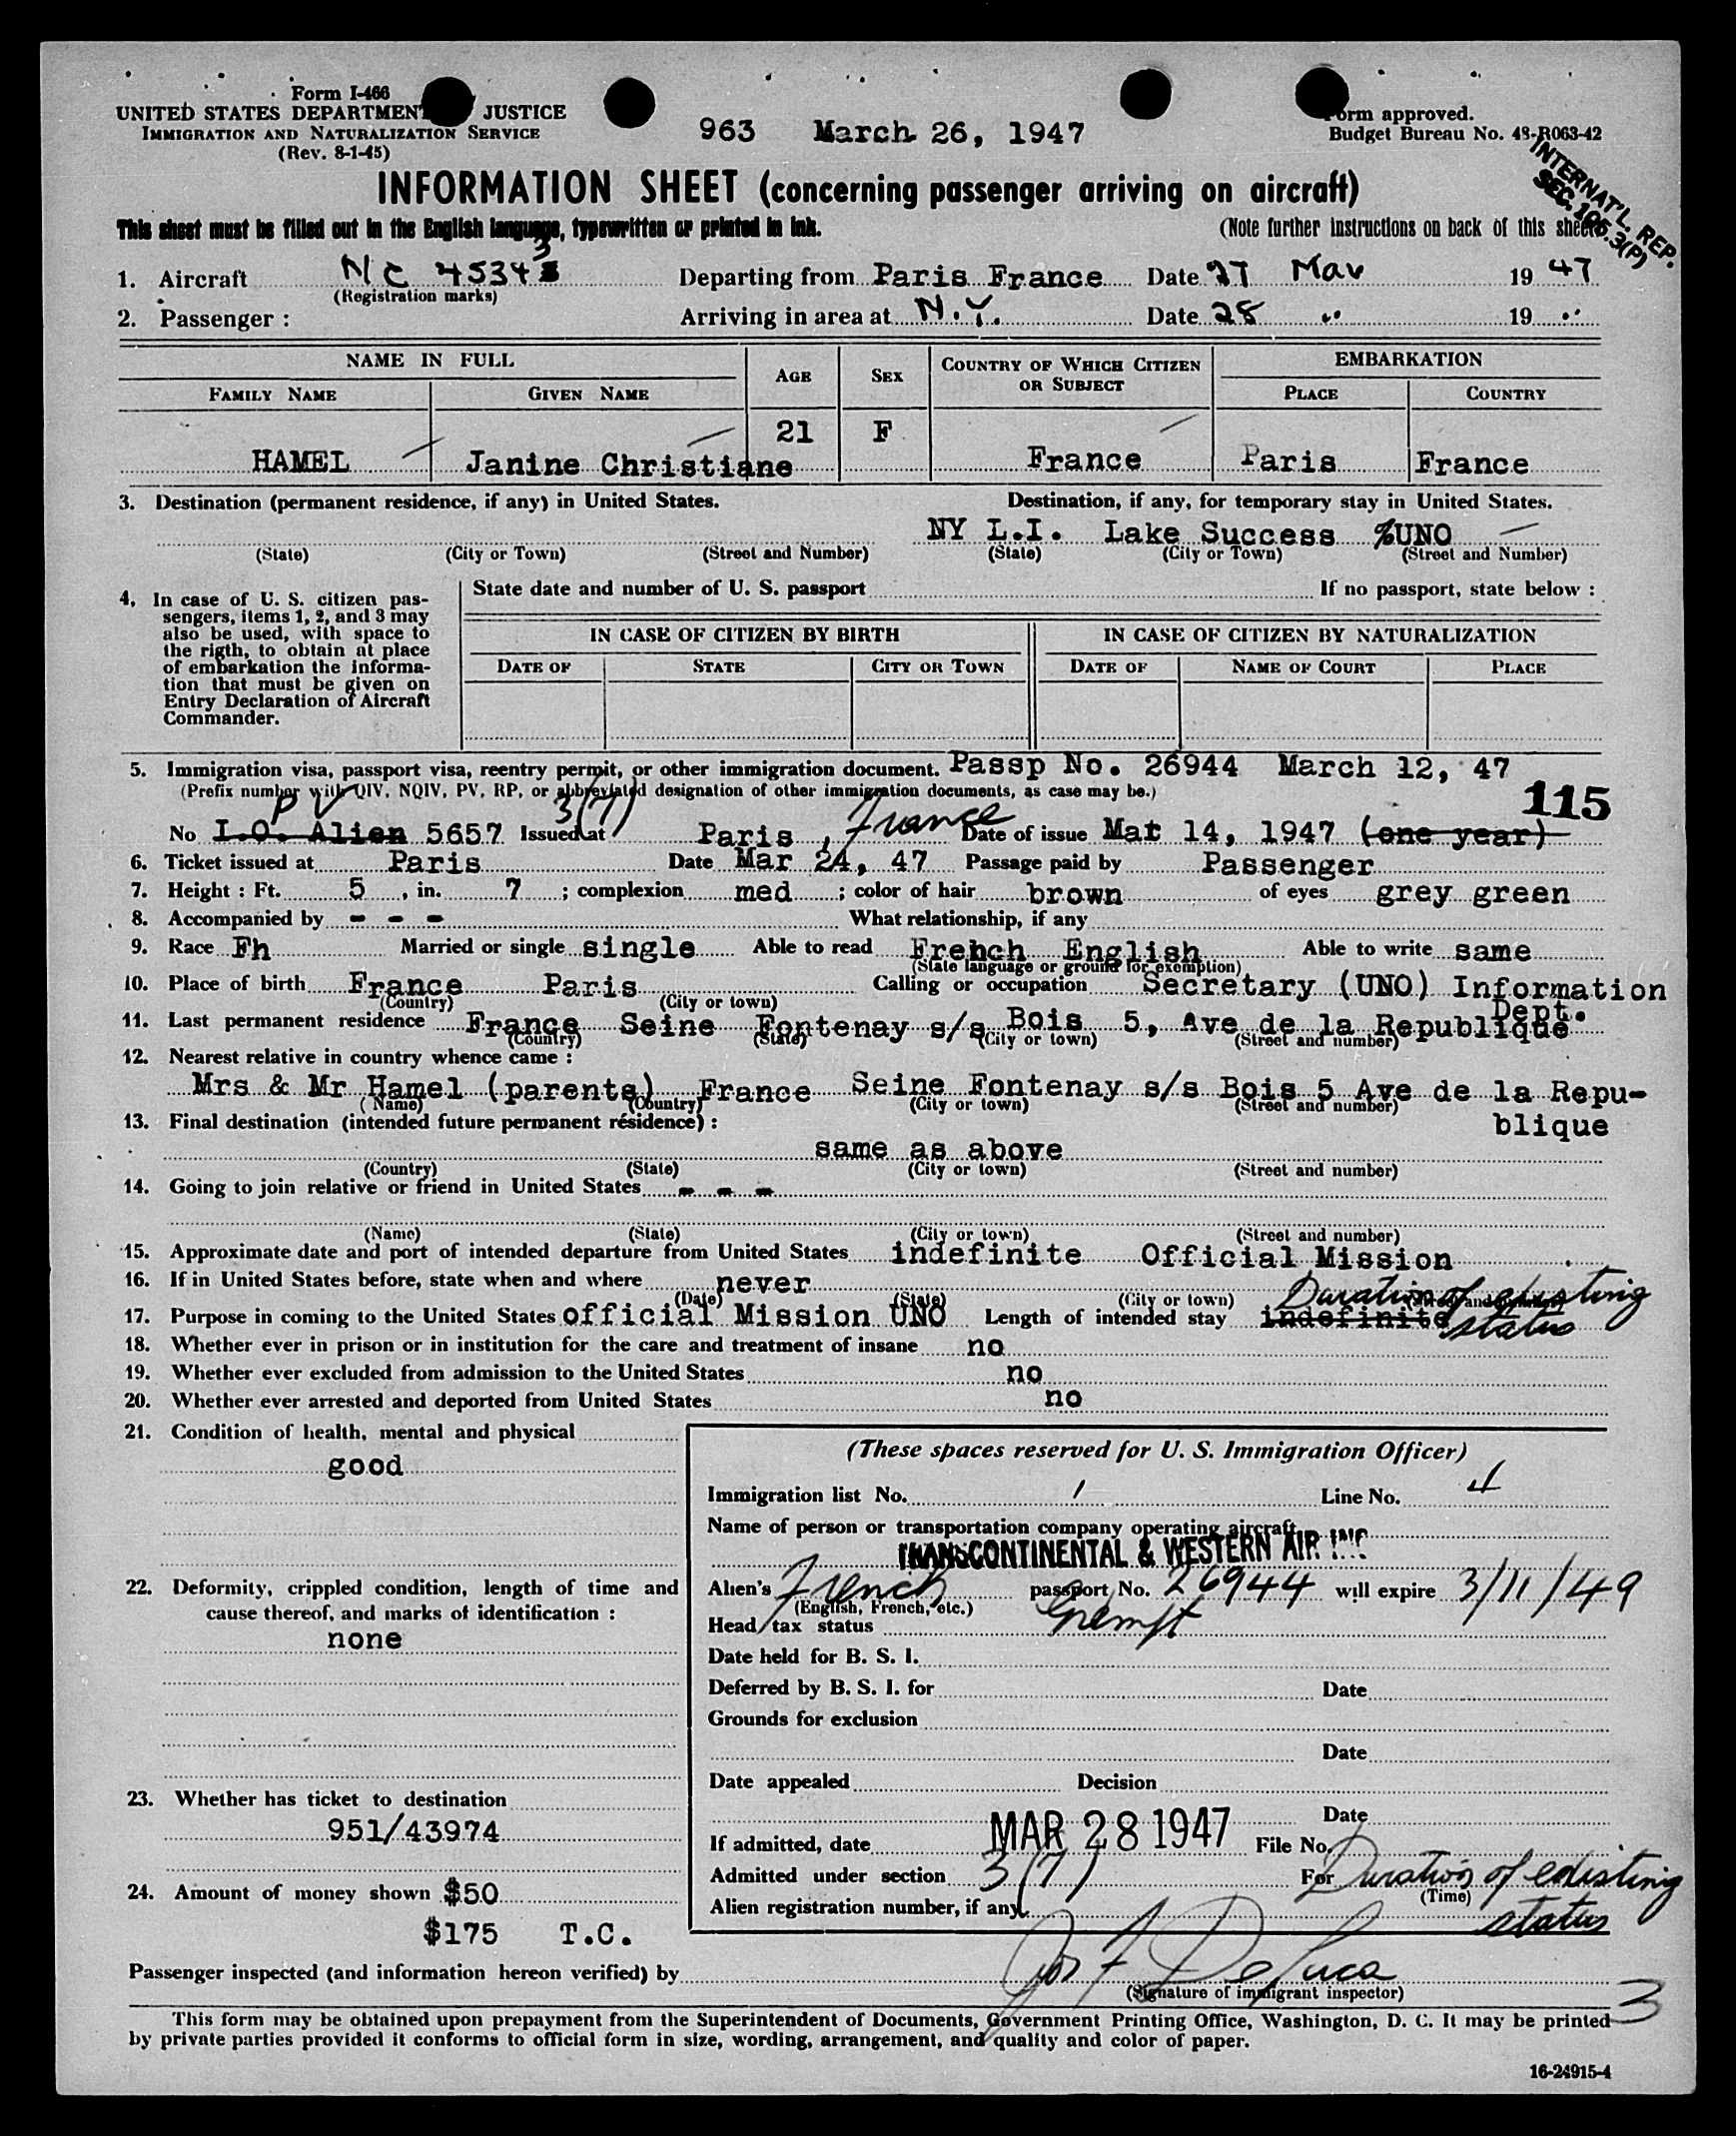 Form I-466
UNITED STATES DEPARTMENT JUSTICE
IMMIGRATION AND NATURALIZATION SERVICE
(Rev. 8-1-45)
963 March 26, 1947
Form approved.
Budget Bureau No. 43-R063-42
INTERNAT'L. REP.
SEC. 105.3(P)
INFORMATION SHEET (concerning passenger arriving on aircraft)
This sheet must be filled out in the English language, typewritten or printed in ink. (Note further instructions on back of this sheet)
1. Aircraft NC 45343 Departing from Paris France Date 27 Mar 1947
(Registration marks)
2. Passenger : Arriving in area at N.Y. Date 28 " 19 "
NAME IN FULL AGE SEX COUNTRY OF WHICH CITIZEN OR SUBJECT EMBARKATION
FAMILY NAME GIVEN NAME PLACE COUNTRY
HAMEL Janine Christiane 21 F France Paris France
3. Destination (permanent residence, if any) in United States. Destination, if any, for temporary stay in United States.
NY L.I. Lake Success %UNO
(State) (City or Town) (Street and Number) (State) (City or Town) (Street and Number)
4. In case of U. S. citizen pas-
sengers, items 1, 2, and 3 may
also be used, with space to
the rigth, to obtain at place
of embarkation the informa-
tion that must be given on
Entry Declaration of Aircraft
Commander.
State date and number of U. S. passport If no passport, state below :
IN CASE OF CITIZEN BY BIRTH IN CASE OF CITIZEN BY NATURALIZATION
DATE OF STATE CITY OR TOWN DATE OF NAME OF COURT PLACE
5. Immigration visa, passport visa, reentry permit, or other immigration document. Passp No. 26944 March 12, 47
(Prefix number with QIV, NQIV, PV, RP, or abbreviated designation of other immigration documents, as case may be.)
115
PV 3(7)
No I.O. Alien 5657 Issued at Paris, France Date of issue Mat 14, 1947 (one year)
6. Ticket issued at Paris Date Mar 24, 47 Passage paid by Passenger
7. Height : Ft. 5, in. 7 ; complexion med ; color of hair brown of eyes grey green
8. Accompanied by - - - What relationship, if any
9. Race Fh Married or single single Able to read French English Able to write same
(State language or ground for exemption)
10. Place of birth France Paris Calling or occupation Secretary (UNO) Information Dept.
(Country) (City or town)
11. Last permanent residence France Seine Fontenay s/s Bois 5, Ave de la Republique
(Country) (State) (City or town) (Street and number)
12. Nearest relative in country whence came :
Mrs & Mr Hamel (parents) France Seine Fontenay s/s Bois 5 Ave de la Repu-
blique
(Name) (Country) (City or town) (Street and number)
13. Final destination (intended future permanent résidence) :
same as above
(Country) (State) (City or town) (Street and number)
14. Going to join relative or friend in United States - - -
(Name) (State) (City or town) (Street and number)
15. Approximate date and port of intended departure from United States indefinite Official Mission
16. If in United States before, state when and where never
(Date) (State) (City or town) (Street and number)
17. Purpose in coming to the United States official Mission UNO Length of intended stay indefinite Duration of existing status
18. Whether ever in prison or in institution for the care and treatment of insane no
19. Whether ever excluded from admission to the United States no
20. Whether ever arrested and deported from United States no
21. Condition of health, mental and physical
good
22. Deformity, crippled condition, length of time and
cause thereof, and marks of identification :
none
23. Whether has ticket to destination
951/43974
24. Amount of money shown $50
$175 T.C.
(These spaces reserved for U. S. Immigration Officer)
Immigration list No. 1 Line No. 4
Name of person or transportation company operating aircraft
TRANSCONTINENTAL & WESTERN AIR INC
Alien's French passport No. 26944 will expire 3/11/49
(English, French, etc.)
Head tax status Exempt
Date held for B. S. I.
Deferred by B. S. I. for Date
Grounds for exclusion
Date
Date appealed Decision
Date
If admitted, date MAR 28 1947 File No.
Admitted under section 3(7) For Duration of existing status
(Time)
Alien registration number, if any
Passenger inspected (and information hereon verified) by Jos F DeLuca
(Signature of immigrant inspector)
3
This form may be obtained upon prepayment from the Superintendent of Documents, Government Printing Office, Washington, D. C. It may be printed
by private parties provided it conforms to official form in size, wording, arrangement, and quality and color of paper.
16-24915-4